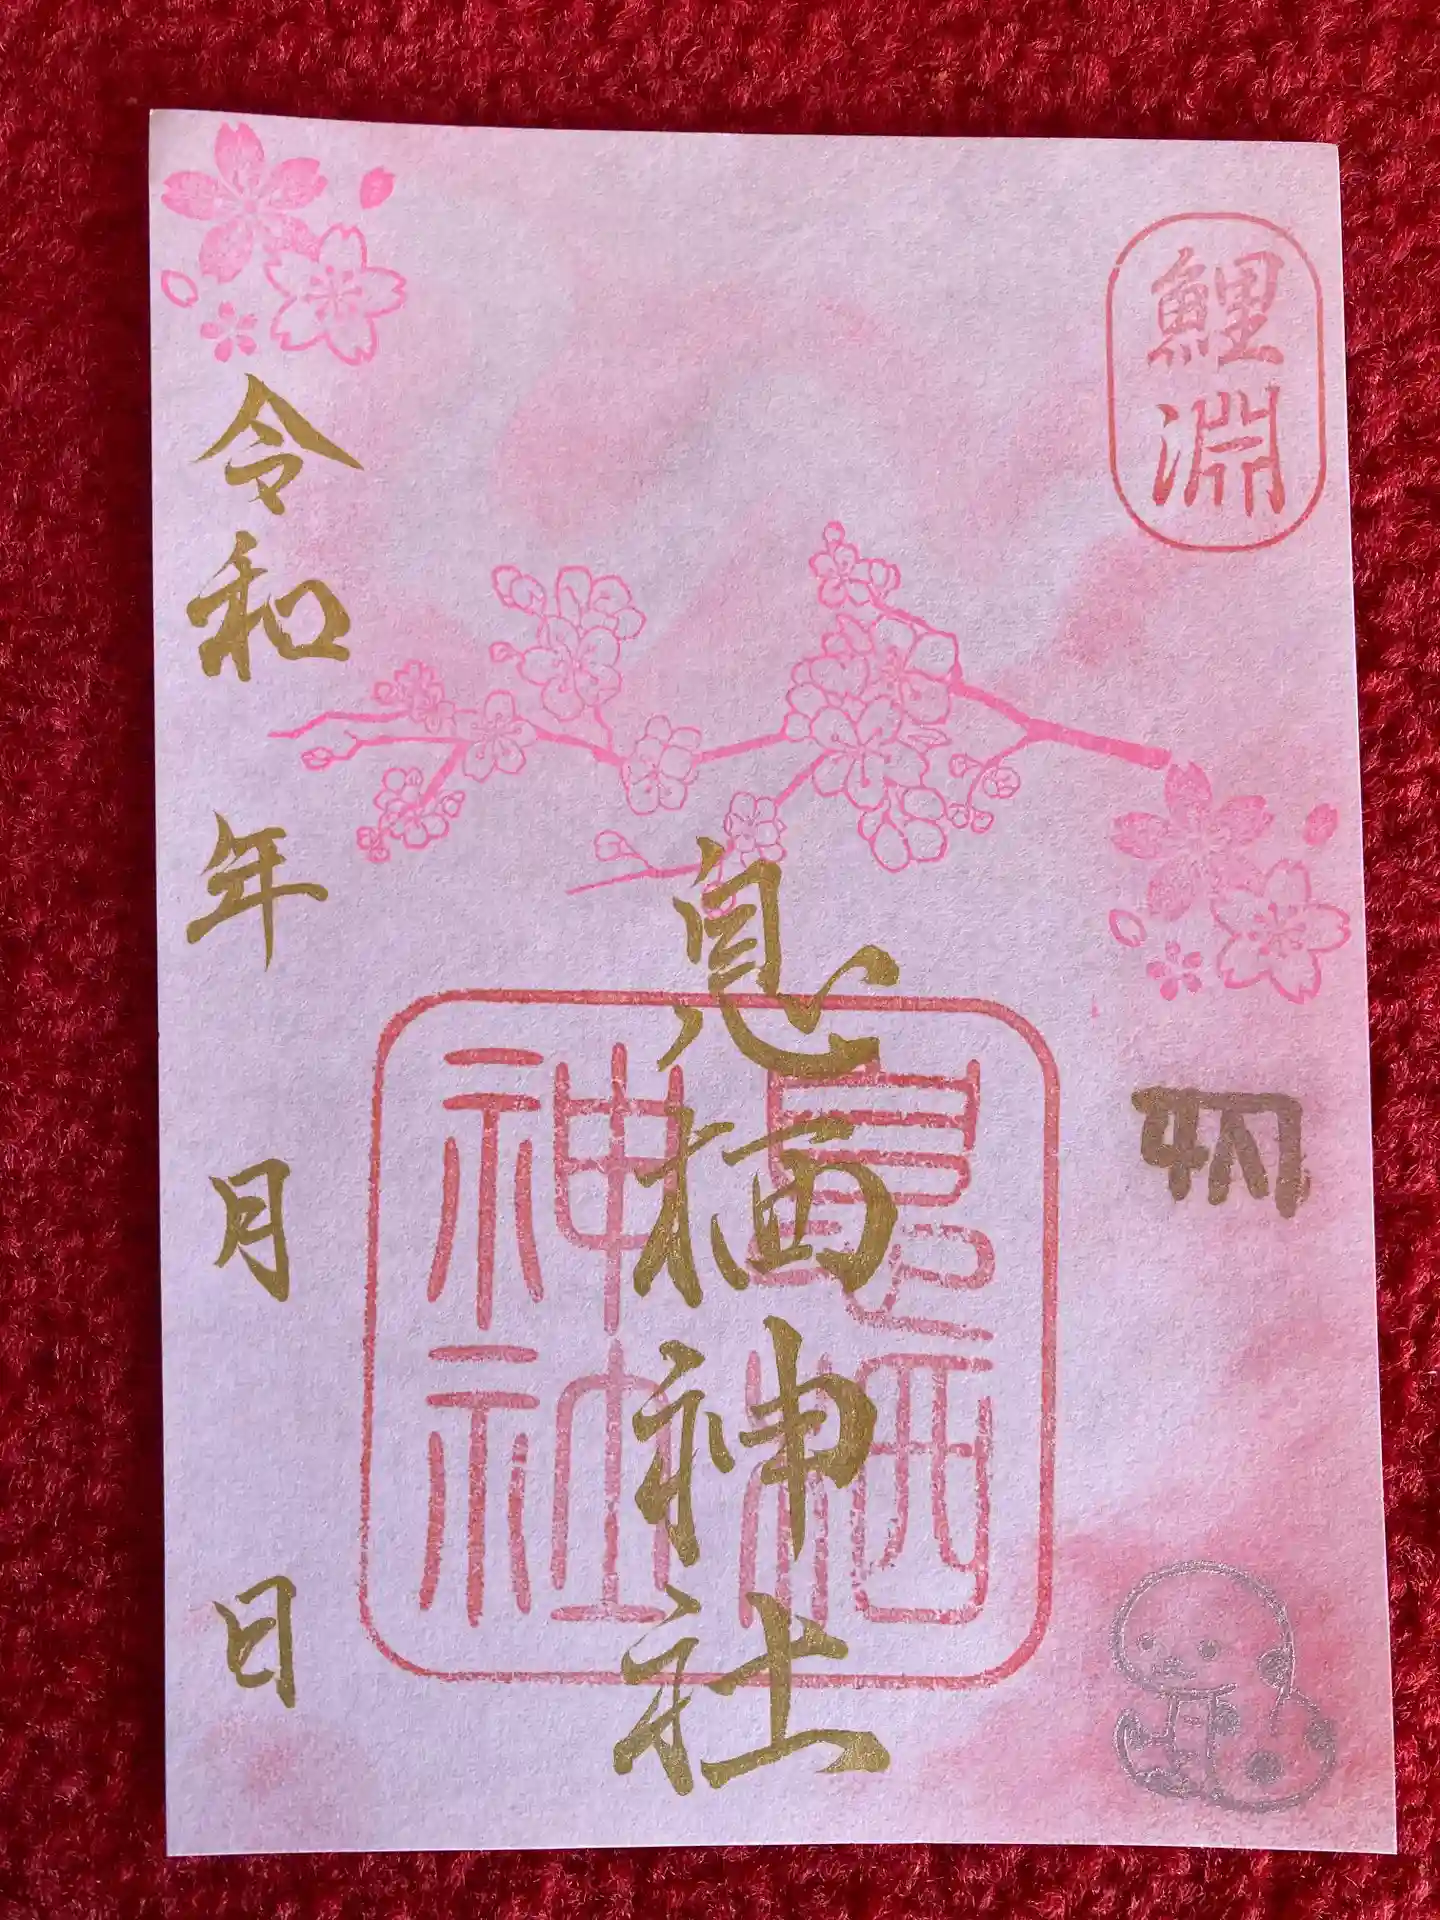 鯉淵
息栖神社
息栖神社
令和 年 月 日